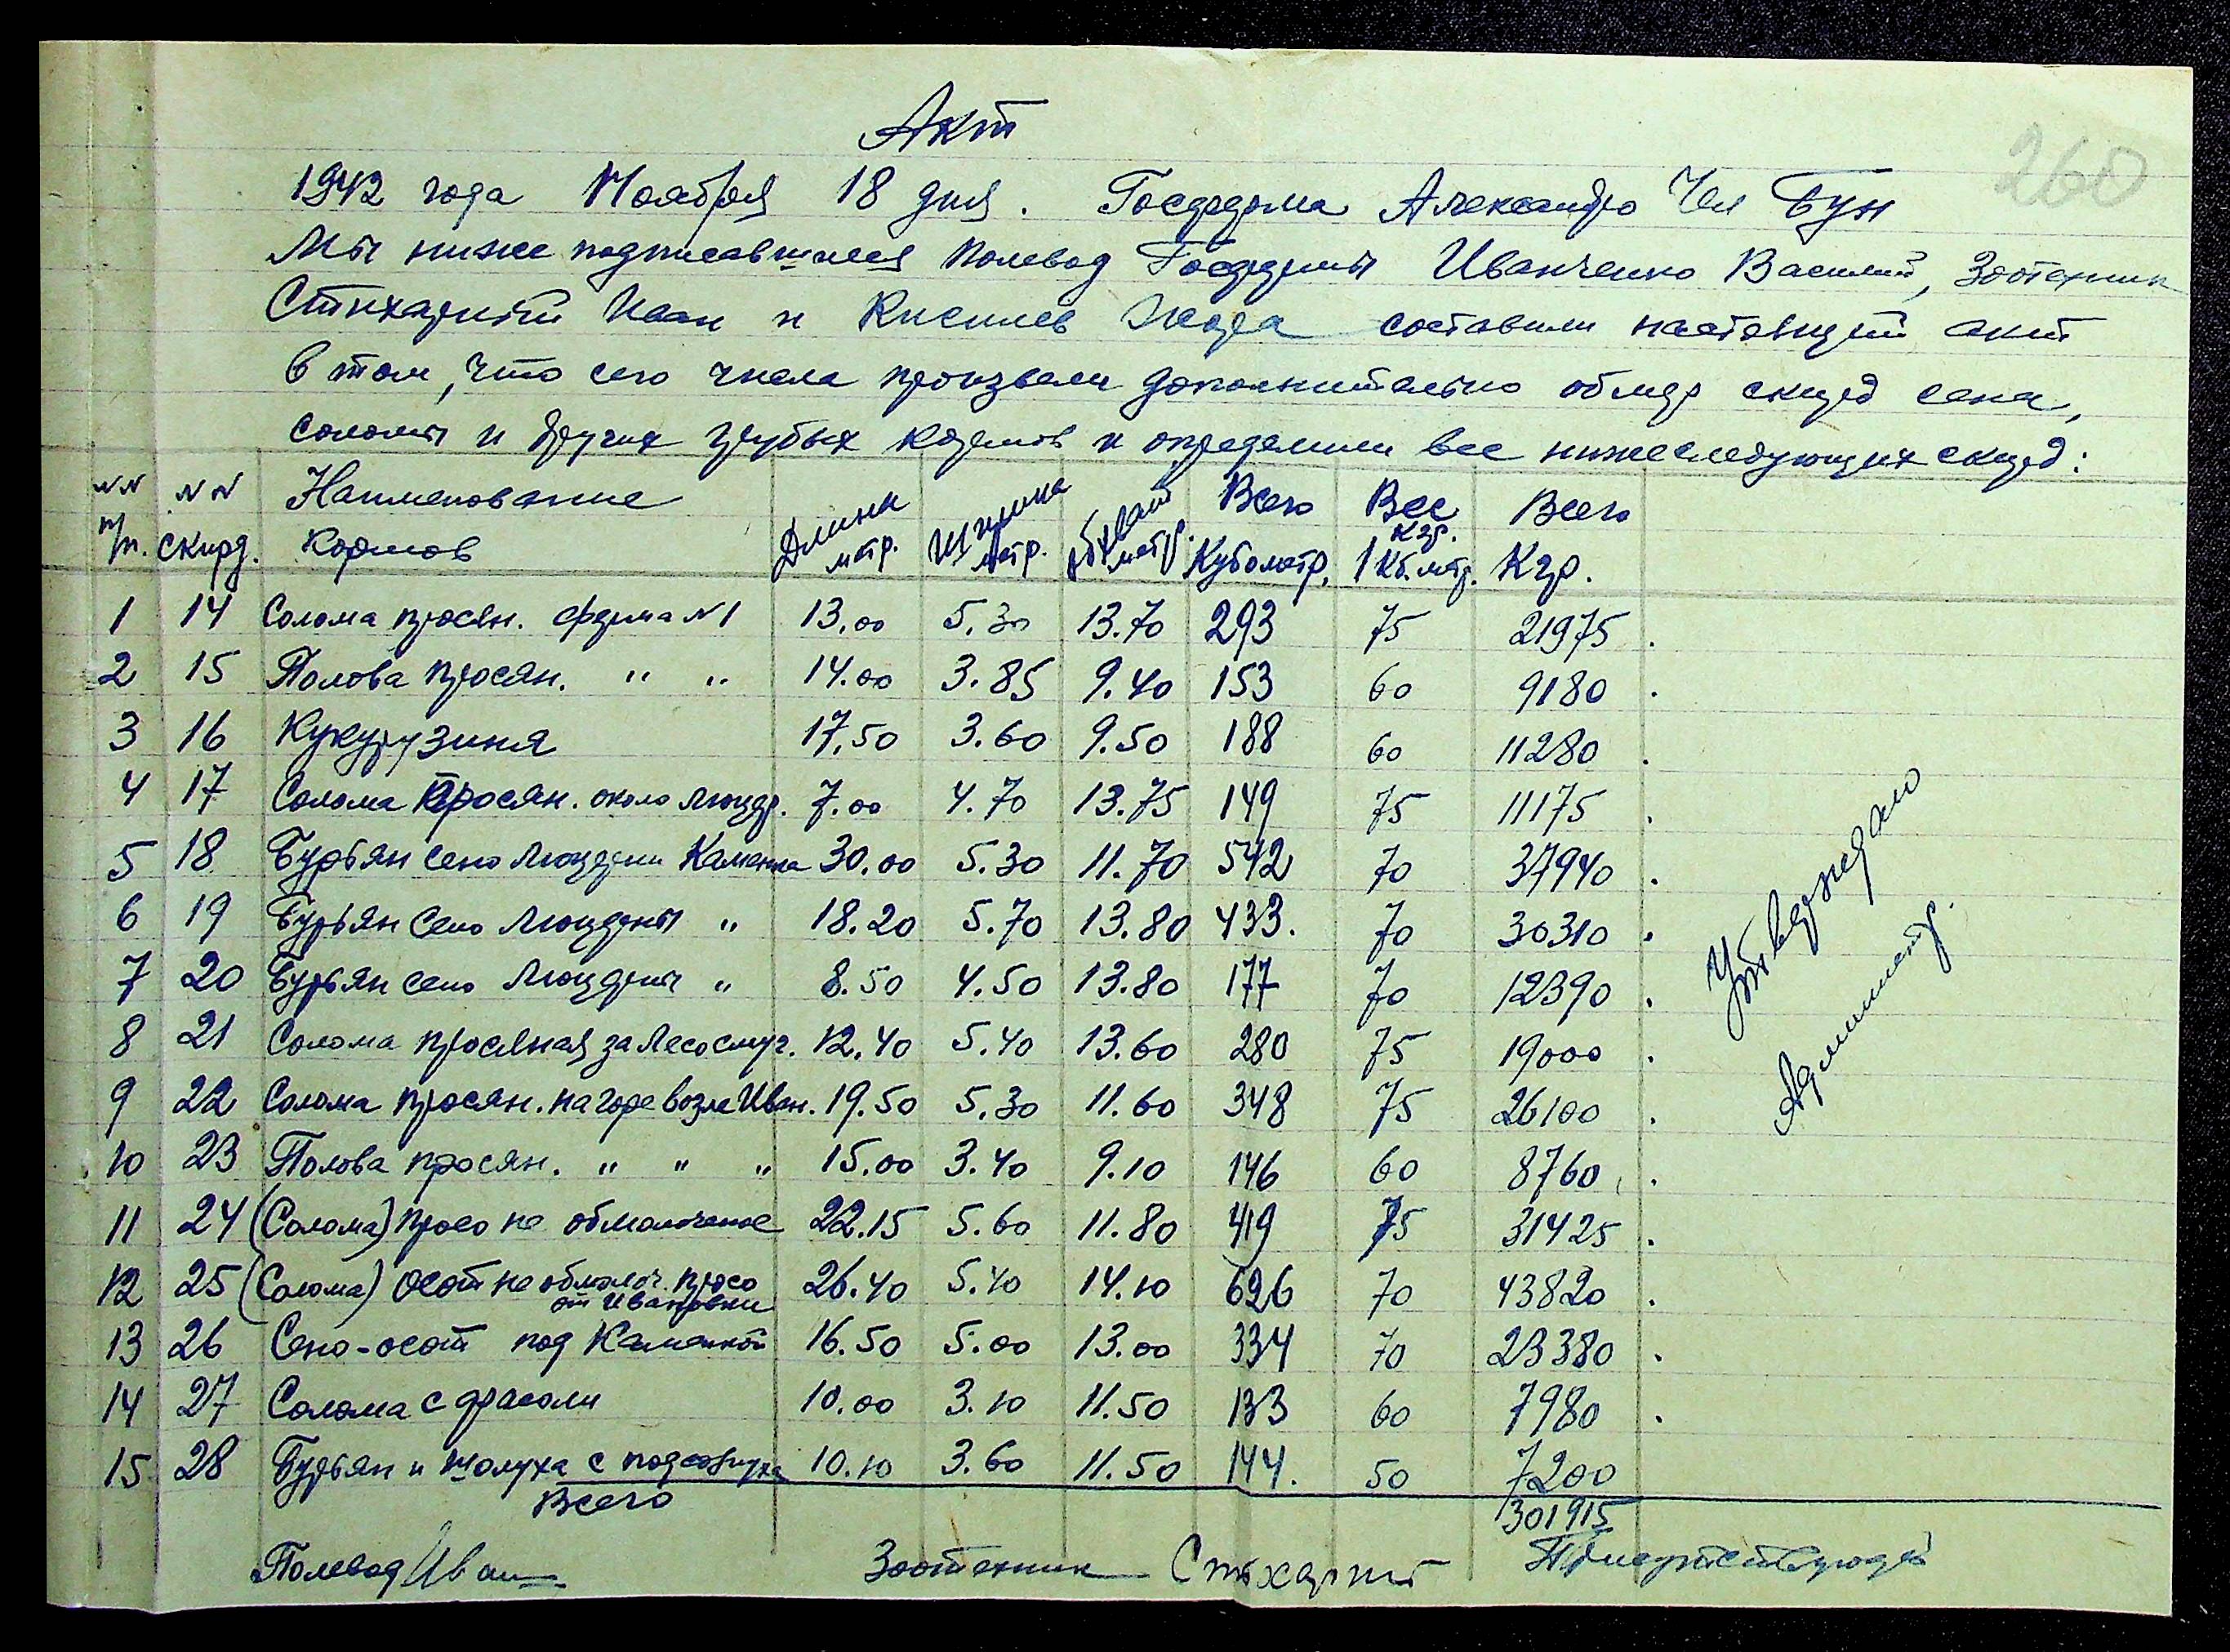 Акт
260
1942 года Ноября 18 дня. Госферма Александро Чел Бун
Мы ниже подписавшиеся полевод Госфермы Иванченко Василий, Зоотехник
Стихарный Иван и Киселев составили настоящий акт
в том, что сего числа произвели дополнительно обмер скирд сена,
соломы и других грубых кормов и определили вес нижеследующих скирд:
NN п/п. NN скирд. Наименование кормов Длина метр. Ширина метр. обхват метр. Всего Кубометр. Вес кгр. 1 Кб.мтр. Всего Кгр.
1 14 Солома просян. ферма N1 13.00 5.30 13.70 293 75 21975.
2 15 Полова просян. " " 14.00 3.85 9.40 153 60 9180.
3 16 Кукурузиня 17.50 3.60 9.50 188 60 11280.
4 17 Солома просян. около люцер. 7.00 4.70 13.75 149 75 11175.
5 18 Бурьян сено люцерни Каменка 30.00 5.30 11.70 542 70 37940.
6 19 Бурьян сено люцерны " 18.20 5.70 13.80 433. 70 30310.
7 20 Бурьян сено люцерны " 8.50 4.50 13.80 177 70 12390.
8 21 Солома просяная за 12.40 5.40 13.60 280 75 19000.
9 22 Солома просян. на горе возле Иван. 19.50 5.30 11.60 348 75 26100.
10 23 Полова просян. " " " 15.00 3.40 9.10 146 60 8760.
11 24 (Солома) просо не обмолоченое 22.15 5.60 11.80 419 75 31425.
12 25 (Солома) осот не обмолоч. просо от Ивановки 26.40 5.40 14.10 626 70 43820.
13 26 Сено-осот под Каменкой 16.50 5.00 13.00 334 70 23380.
14 27 Солома с фасоли 10.00 3.10 11.50 133 60 7980.
15 28 Бурьян и шолуха с подсолнуха 10.10 3.60 11.50 144. 50 7200
Всего 301915
Утверждаю
Администр.
Полевод Иван
Зоотехник Стихарный
Присутствующий